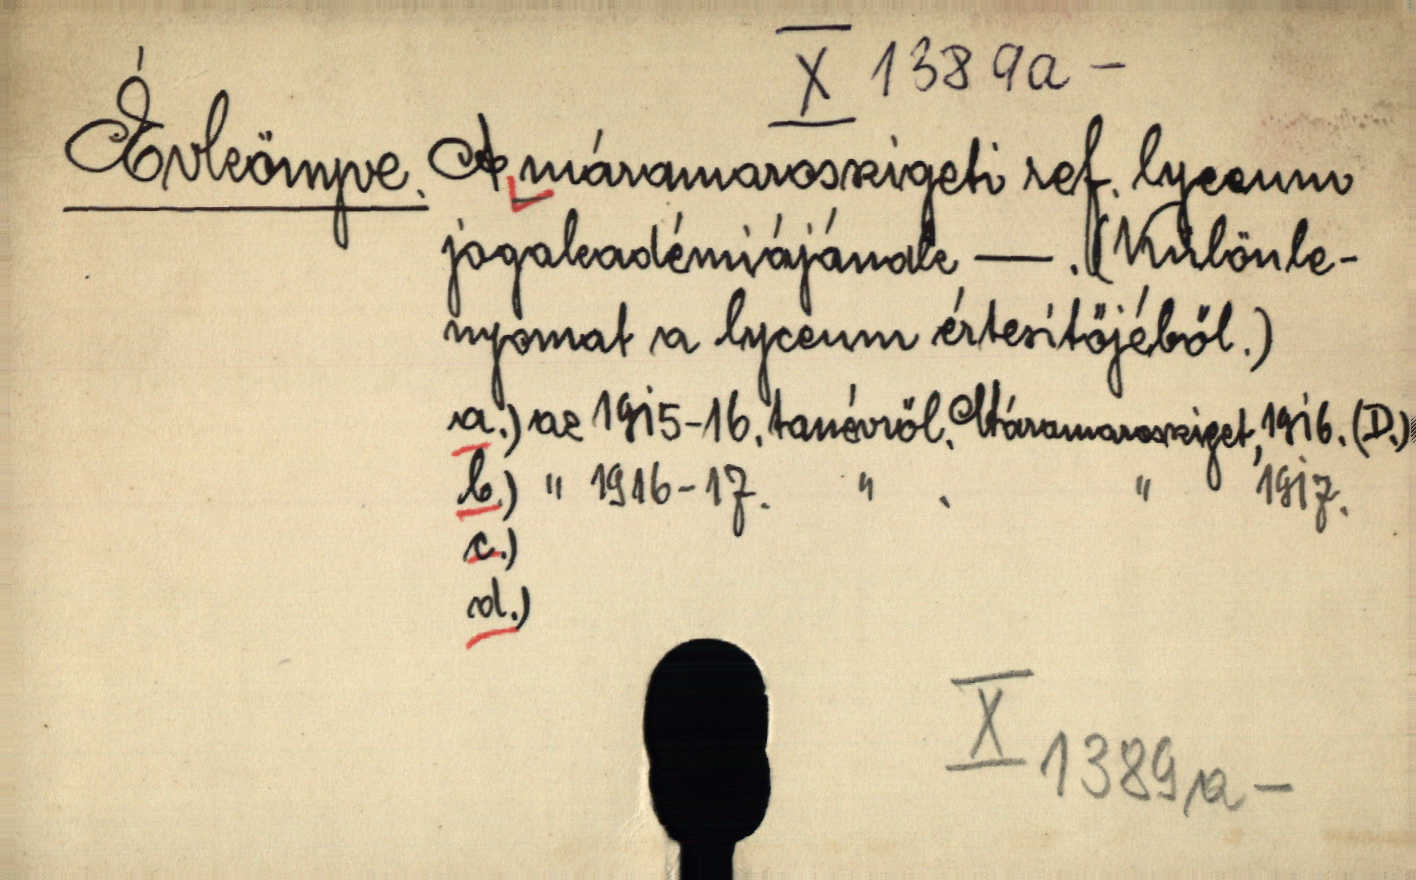 X 1389a -
Évkönyve. A máramarosszigeti ref. lyceum
jogakadémiájának —. (Különle-
nyomat a lyceum értesítőjéből.)
a.) az 1915-16. tanévről. Máramarossziget, 1916. (D.)
b.) " 1916-17. " . " 1917.
c.)
d.)
X 1389a -